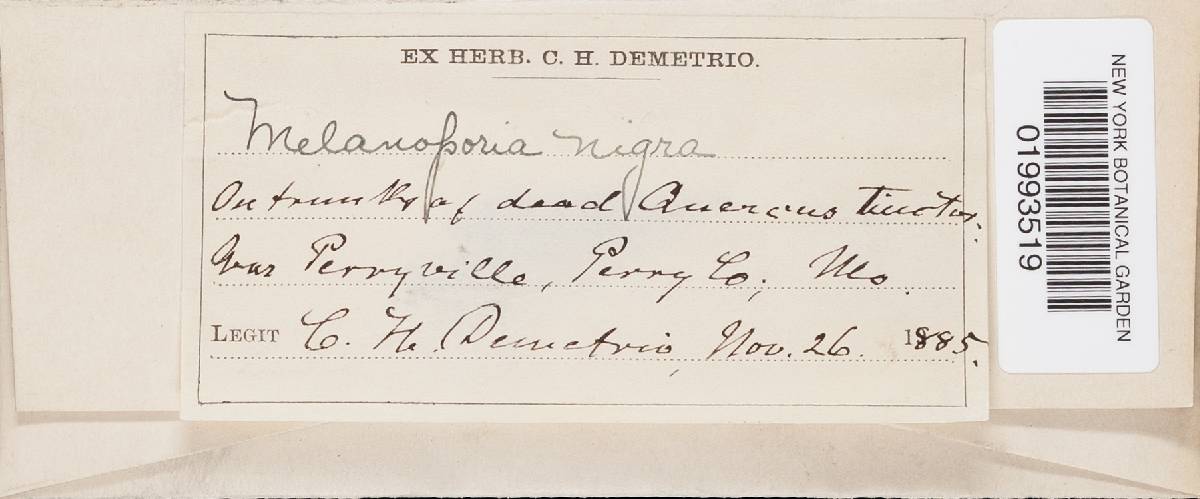 EX HERB. C. H. DEMETRIO.
Melanoporia nigra
On trunks of dead Quercus tinctor.
Near Perryville, Perry Co., Mo.
LEGIT C. H. Demetrio, Nov. 26. 1885.
NEW YORK BOTANICAL GARDEN
01993519